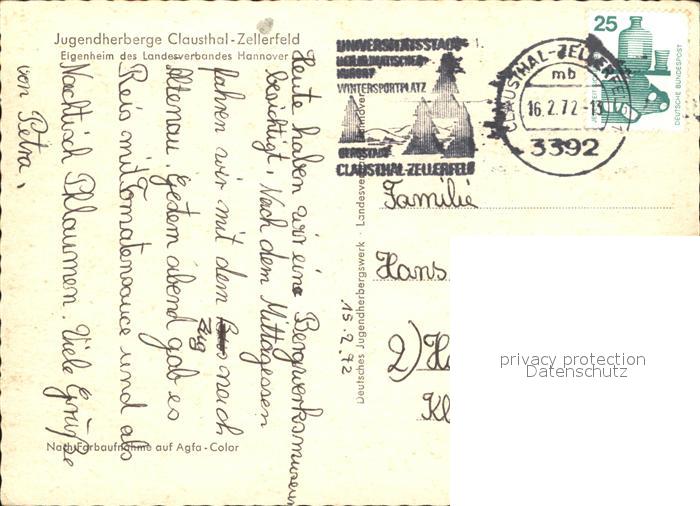 Jugendherberge Clausthal-Zellerfeld
Eigenheim des Landesverbandes Hannover
Heute haben wir eine Bergwerksmuseum
besichtigt. Nach dem Mittagessen
fahren wir mit dem Zug nach
Altenau. Gestern abend gab es
Reis mit Tomatensauce und als
Nachtisch Pflaumen. Viele Grüße
von Petra.
Nach Farbaufnahme auf Agfa-Color
15.2.72
Deutsches Jugendherbergswerk · Landesverband Hannover
UNIVERSITÄTSSTADT
HEILKLIMATISCHER
KURORT
WINTERSPORTPLATZ
BERGSTADT
CLAUSTHAL-ZELLERFELD
CLAUSTHAL-ZELLERFELD
mb
16.2.72-13
3392
25
DEUTSCHE BUNDESPOST
Familie
Hans
2) H
Kl
privacy protection
Datenschutz